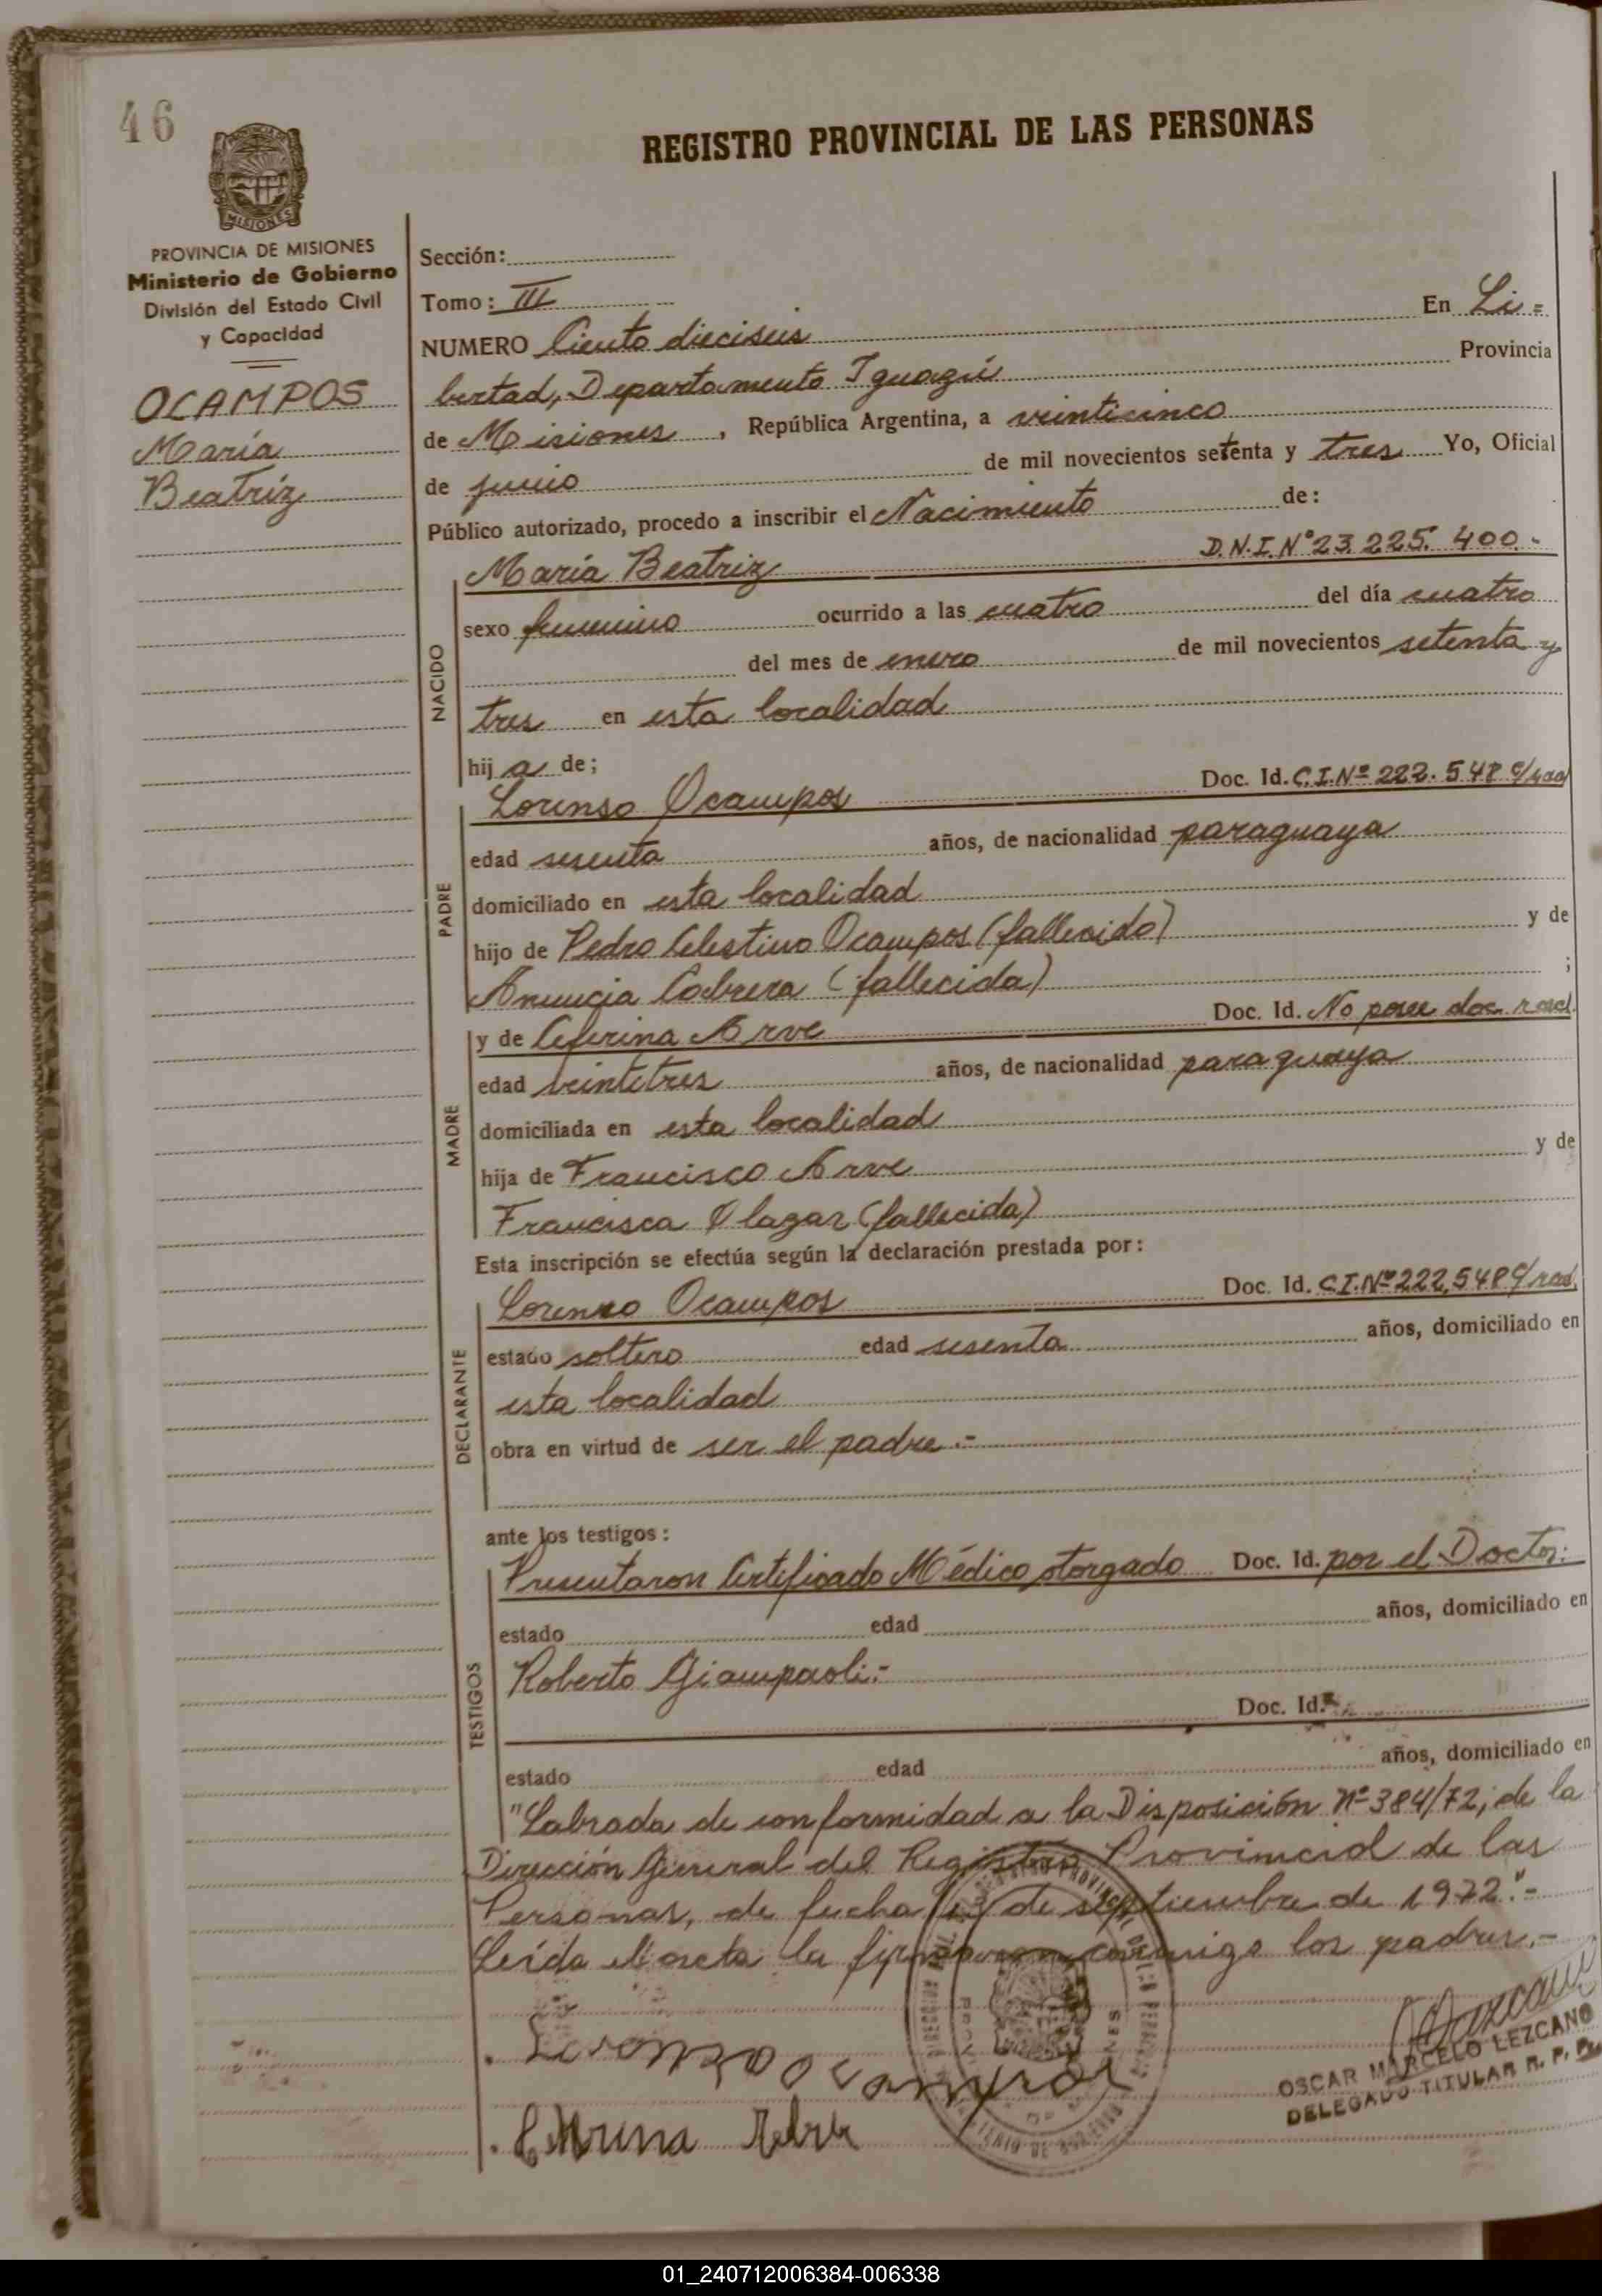 46
REGISTRO PROVINCIAL DE LAS PERSONAS
MISIONES
PROVINCIA DE MISIONES
Ministerio de Gobierno
División del Estado Civil
y Capacidad
OCAMPOS
María
Beatríz
Sección:
Tomo: III
En Li=
NUMERO Ciento dieciseis
bertad, Departamento Iguazú Provincia
de Misiones, República Argentina, a veinticinco
de junio de mil novecientos setenta y tres Yo, Oficial
Público autorizado, procedo a inscribir el Nacimiento de:
María Beatriz D.N.I. N° 23.225.400.-
NACIDO
sexo femenino ocurrido a las cuatro del día cuatro
del mes de enero de mil novecientos setenta y
tres en esta localidad
hija de;
Lorenso Ocampos Doc. Id. C.I. Nº 222.548
PADRE
edad sesenta años, de nacionalidad paraguaya
domiciliado en esta localidad
hijo de Pedro Celestino Ocampos (fallecido) y de
Anuncia Cabrera (fallecida) ;
y de Ceferina Arve Doc. Id. No posee doc.
MADRE
edad veintitres años, de nacionalidad paraguaya
domiciliada en esta localidad
hija de Francisco Arve y de
Francisca Olagar (fallecida)
Esta inscripción se efectúa según la declaración prestada por:
Lorenzo Ocampos Doc. Id. C.I. Nº 222,548
DECLARANTE
estado soltero edad sesenta años, domiciliado en
esta localidad
obra en virtud de ser el padre.-
ante los testigos:
TESTIGOS
Presentaron Certificado Médico otorgado Doc. Id. por el Doctor:
estado edad años, domiciliado en
Roberto Giampaoli:-
Doc. Id.
estado edad años, domiciliado en
"Labrada de conformidad a la Disposición Nº 384/72, de la
Dirección General del Registro Provincial de las
Personas, de fecha de septiembre de 1972".-
Leída el acta la firmaron conmigo los padres.-
Lorenzo Ocampos
OSCAR MARCELO LEZCANO
DELEGADO TITULAR R. P. P.
01_240712006384-006338